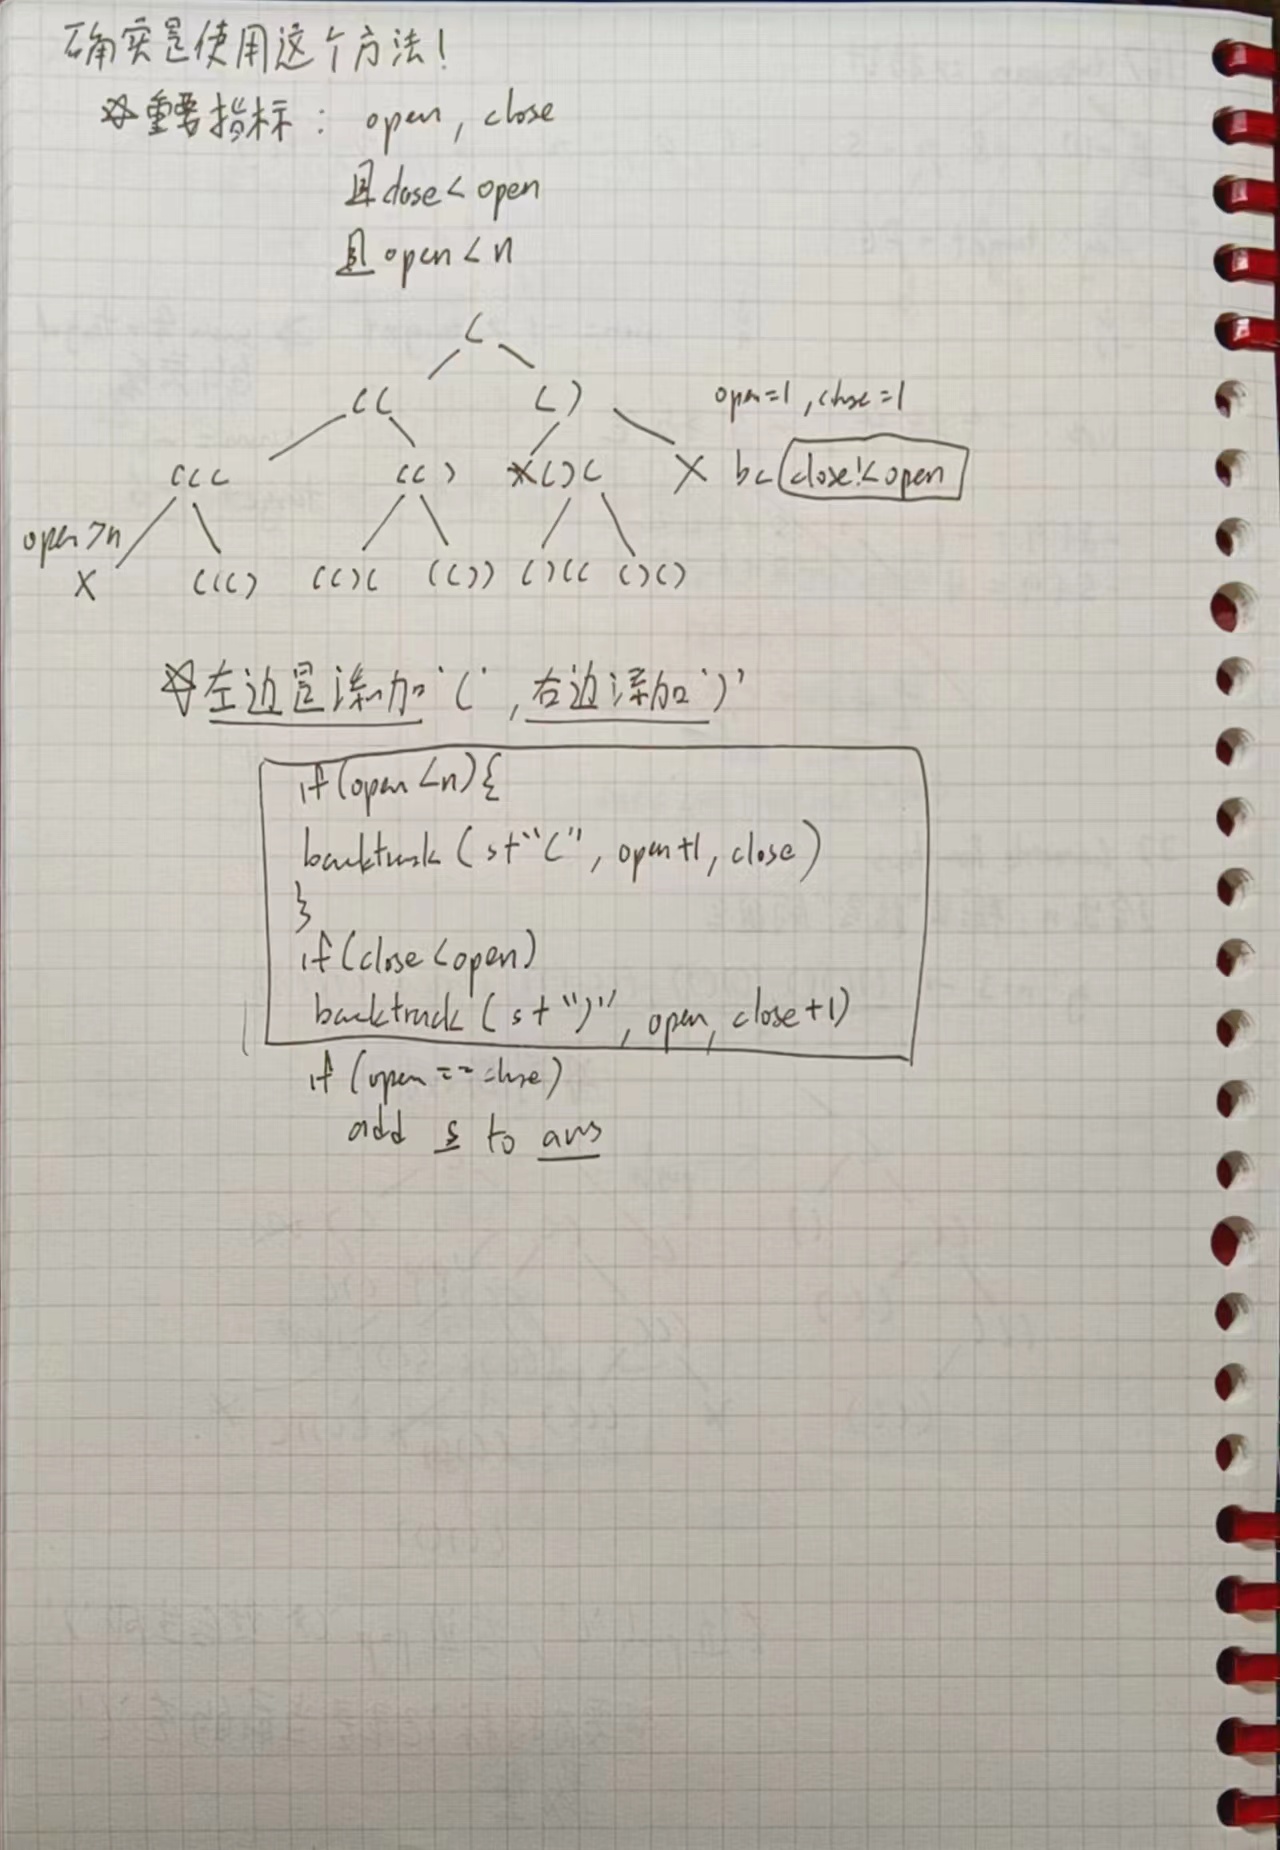 确实是使用这个方法!
☆重要指标: open, close
且close<open
且open<n
(
(( ()
open=1, close=1
((( (() ()( X bc close!<open
open>n
X ((() (()( (()) ()(( ()()
☆左边是添加'(', 右边添加')'
if(open<n){
backtrack(s+"(", open+1, close)
}
if(close<open)
backtrack(s+")", open, close+1)
if(open==close)
add s to ans